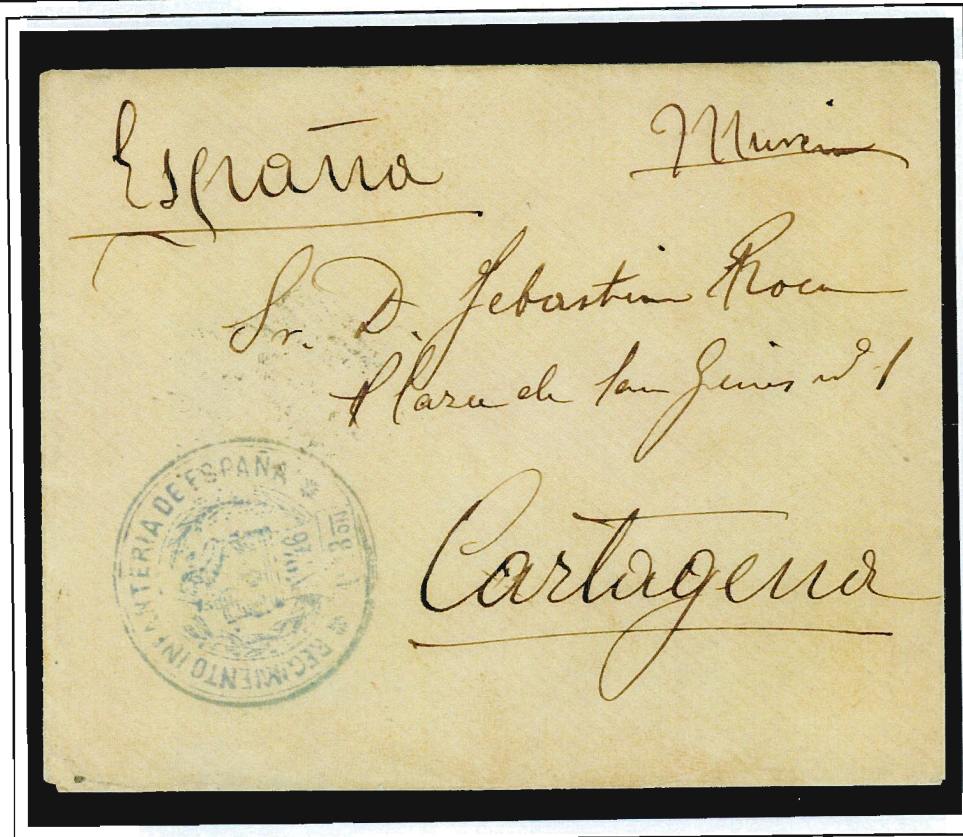 España
Murcia
Sr. D. Sebastian Roca
Plaza de San Gines nº 1
Cartagena
REGIMIENTO INFANTERIA DE ESPAÑA